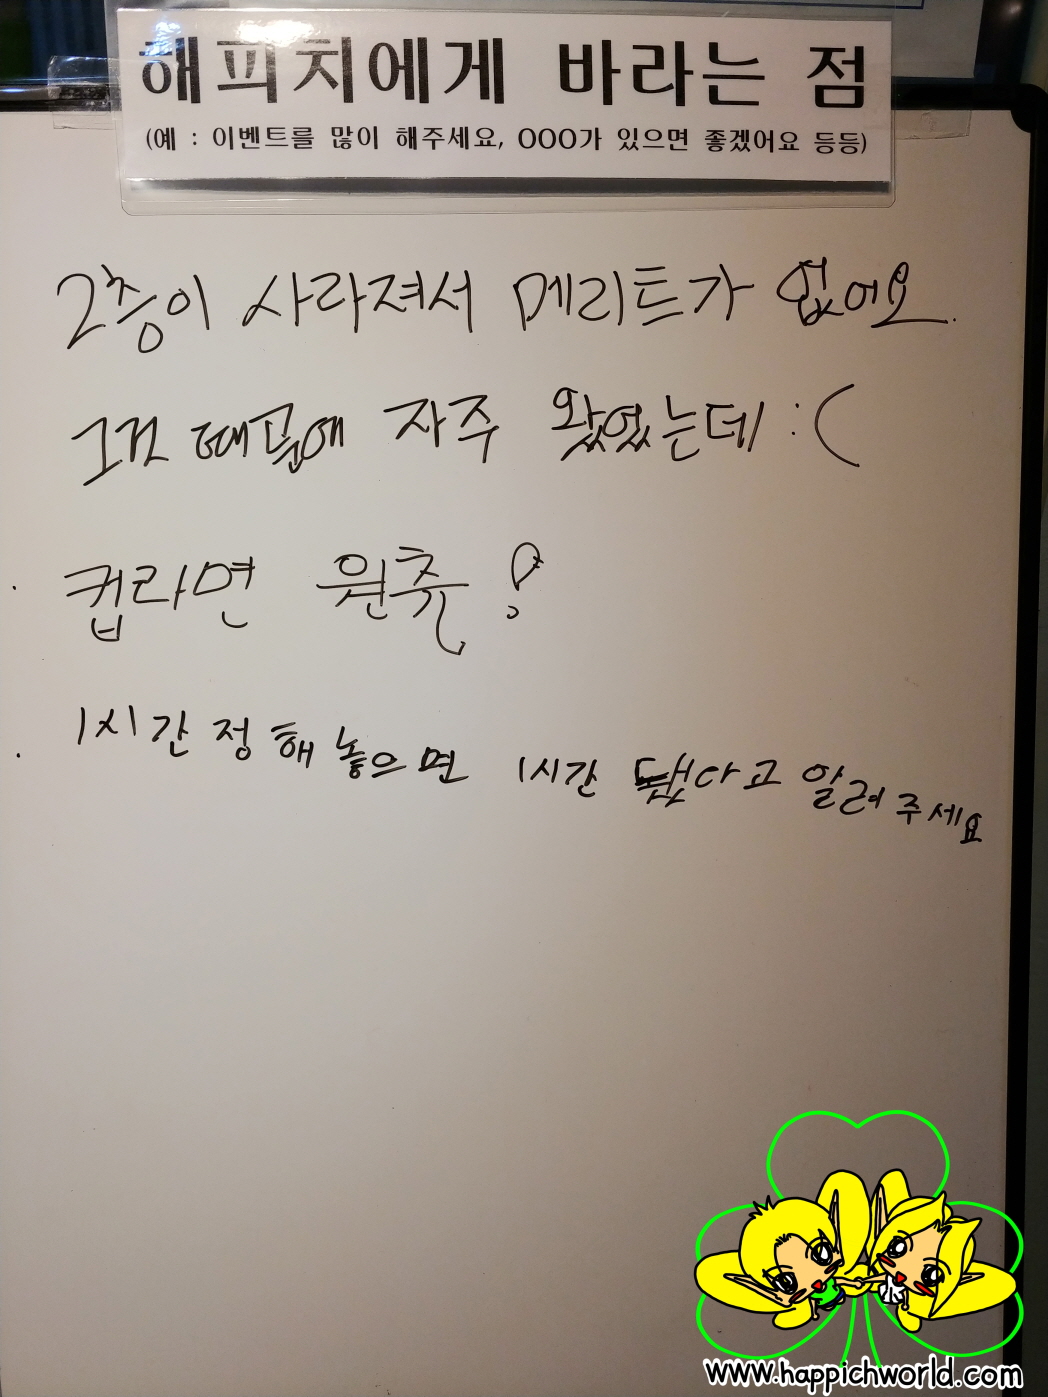 해피치에게 바라는 점
(예 : 이벤트를 많이 해주세요, OOO가 있으면 좋겠어요 등등)
2층이 사라져서 메리트가 없어요.
그것 때문에 자주 왔었는데 :(
· 컵라면 원츄!
· 1시간 정해 놓으면 1시간 됐다고 알려주세요
www.happichworld.com